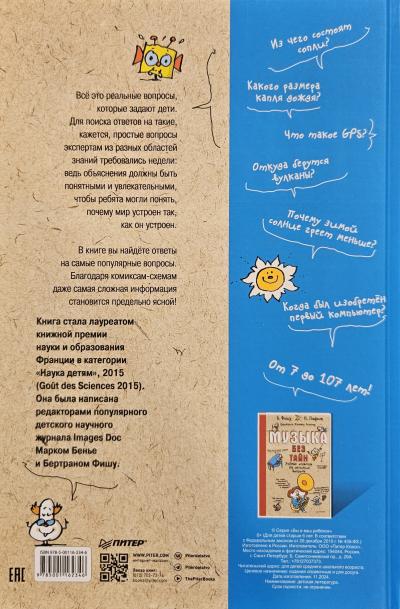 Всё это реальные вопросы,
которые задают дети.
Для поиска ответов на такие,
кажется, простые вопросы
экспертам из разных областей
знаний требовались недели:
ведь объяснения должны быть
понятными и увлекательными,
чтобы ребята могли понять,
почему мир устроен так,
как он устроен.
В книге вы найдёте ответы
на самые популярные вопросы.
Благодаря комиксам-схемам
даже самая сложная информация
становится предельно ясной!
Книга стала лауреатом
книжной премии
науки и образования
Франции в категории
«Наука детям», 2015
(Goût des Sciences 2015).
Она была написана
редакторами популярного
детского научного
журнала Images Doc
Марком Бенье
и Бертраном Фишу.
Из чего состоят
сопли?
Какого размера
капля дождя?
Что такое GPS?
Откуда берутся
вулканы?
Почему зимой
солнце греет меньше?
Когда был изобретён
первый компьютер?
От 7 до 107 лет!
МУЗЫКА
БЕЗ
ТАЙН
ПИТЕР
WWW.PITER.COM
интернет-магазин